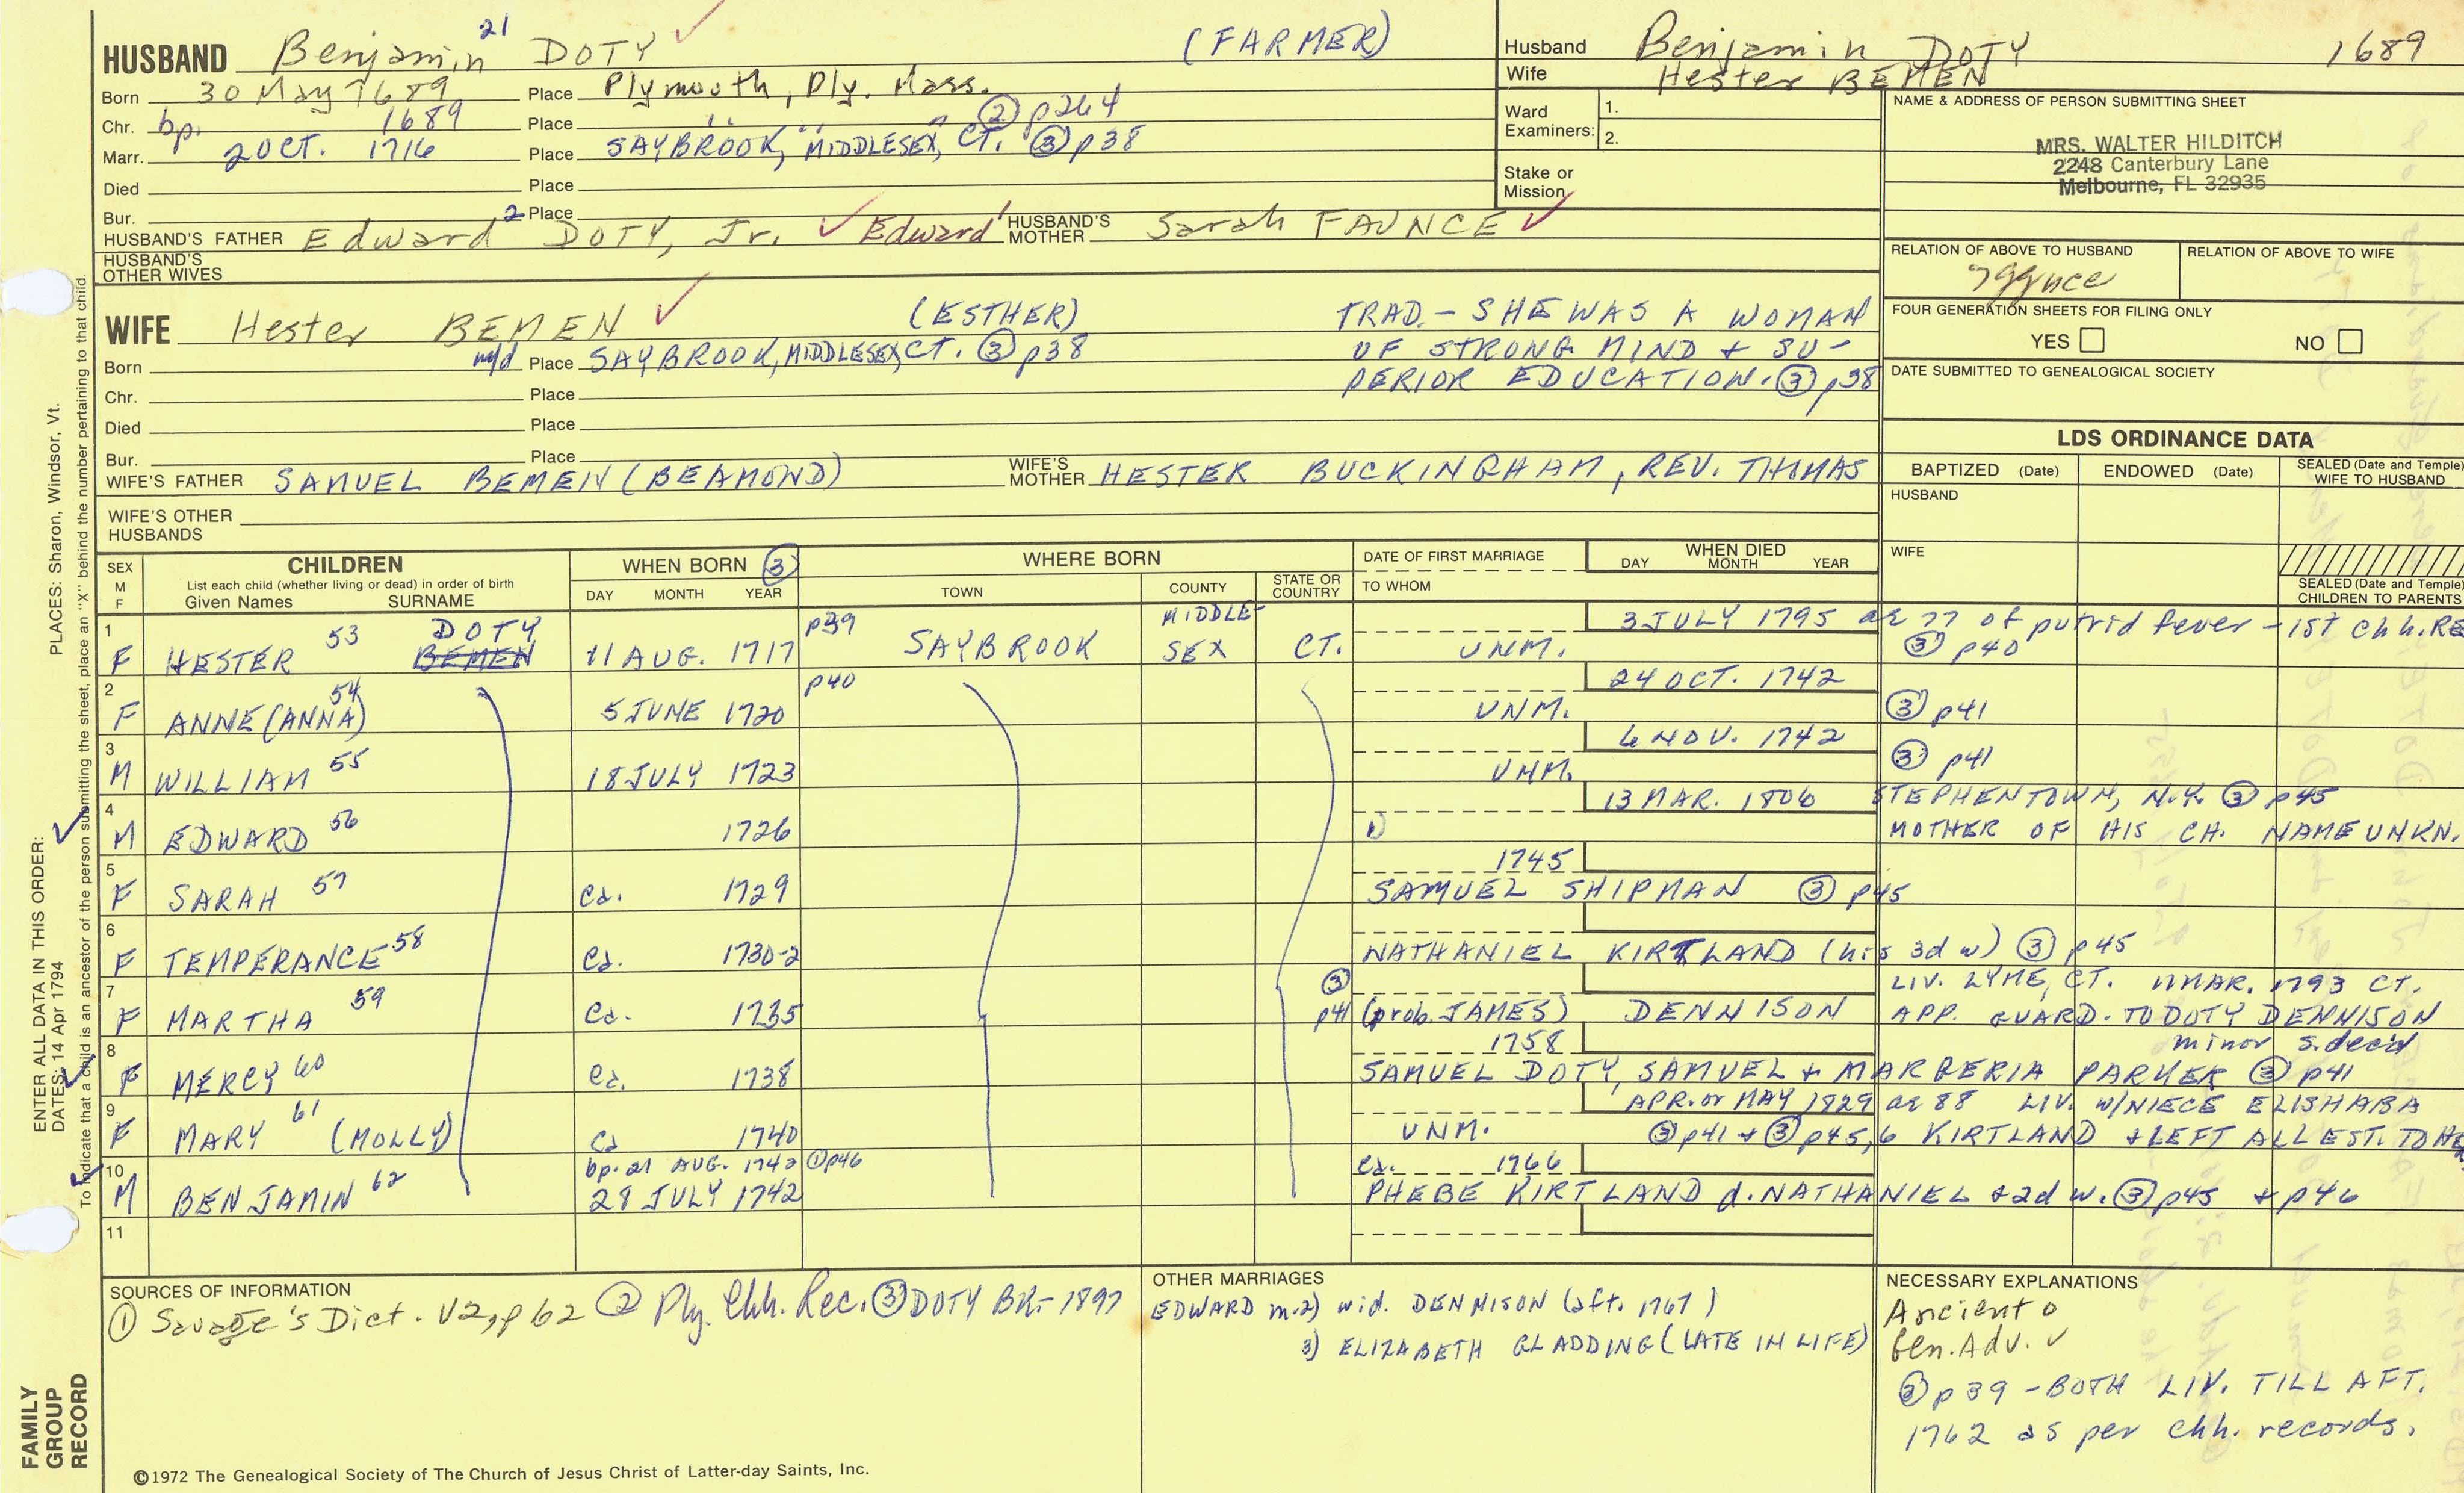 HUSBAND Benjamin 21 DOTY (FARMER)
Born 30 May 1689 Place Plymouth, Ply. Mass.
Chr. bp. 1689 Place " " " ② p264
Marr. 2 OCT. 1716 Place SAYBROOK, MIDDLESEX, CT. ③ p38
Died Place
Bur. Place
HUSBAND'S FATHER Edward 2 DOTY, Jr. Edward 1 HUSBAND'S MOTHER Sarah FAUNCE
HUSBAND'S OTHER WIVES
Husband Benjamin DOTY 1689
Wife Hester BEMEN
Ward Examiners: 1.
2.
Stake or Mission
NAME & ADDRESS OF PERSON SUBMITTING SHEET
MRS. WALTER HILDITCH
2248 Canterbury Lane
Melbourne, FL 32935
RELATION OF ABOVE TO HUSBAND RELATION OF ABOVE TO WIFE
FOUR GENERATION SHEETS FOR FILING ONLY
YES NO
DATE SUBMITTED TO GENEALOGICAL SOCIETY
WIFE Hester BEMEN (ESTHER)
TRAD. - SHE WAS A WOMAN
OF STRONG MIND + SU-
PERIOR EDUCATION. ③ p38
Born Place SAYBROOK, MIDDLESEX, CT. ③ p38
Chr. Place
Died Place
Bur. Place
WIFE'S FATHER SAMUEL BEMEN (BEAMOND) WIFE'S MOTHER HESTER BUCKINGHAM, REV. THOMAS
WIFE'S OTHER HUSBANDS
LDS ORDINANCE DATA
BAPTIZED (Date) ENDOWED (Date) SEALED (Date and Temple) WIFE TO HUSBAND
HUSBAND
WIFE
SEALED (Date and Temple) CHILDREN TO PARENTS
SEX M F
CHILDREN
List each child (whether living or dead) in order of birth
Given Names SURNAME
WHEN BORN ③
DAY MONTH YEAR
WHERE BORN
TOWN COUNTY STATE OR COUNTRY
DATE OF FIRST MARRIAGE
TO WHOM
WHEN DIED
DAY MONTH YEAR
1 F HESTER 53 DOTY BEMEN 11 AUG. 1717 p39 SAYBROOK MIDDLESEX CT. UNM. 3 JULY 1795 ae 77 of putrid fever - 1st Chh. RE
③ p40
2 F ANNE (ANNA) 54 5 JUNE 1720 p40 UNM. 24 OCT. 1742 ③ p41
3 M WILLIAM 55 18 JULY 1723 UNM. 6 NOV. 1742 ③ p41
4 M EDWARD 56 1726 1) 13 MAR. 1806 STEPHENTOWN, N.Y. ③ p45
MOTHER OF HIS CH. NAME UNKN.
5 F SARAH 57 ca. 1729 1745
SAMUEL SHIPMAN ③ p45
6 F TEMPERANCE 58 ca. 1730-2 NATHANIEL KIRTLAND (his 3d w) ③ p45
7 F MARTHA 59 ca. 1735 ③ p41 (prob. JAMES) DENNISON
LIV. LYME, CT. 11 MAR. 1793 CT.
APP. GUARD. TO DOTY DENNISON
minor s. dec'd
8 F MERCY 60 ca. 1738 1758
SAMUEL DOTY, SAMUEL + MARBERIA PARKER ③ p41
9 F MARY 61 (MOLLY) ca 1740 UNM. APR. or MAY 1829 ae 88 LIV. w/NIECE ELISHABA
③ p41 + ③ p45,6 KIRTLAND + LEFT ALL EST. TO HER
10 M BENJAMIN 62 bp. 21 AUG. 1742 ① p46
28 JULY 1742 ca. 1766
PHEBE KIRTLAND d. NATHANIEL + 2d w. ③ p45 + p46
11
SOURCES OF INFORMATION
① Savage's Dict. V2, p 62 ② Ply. Chh. Rec. ③ DOTY BK - 1897
OTHER MARRIAGES
EDWARD m. 2) wid. DENNISON (aft. 1767)
3) ELIZABETH GLADDING (LATE IN LIFE)
NECESSARY EXPLANATIONS
Ancient o
Gen. Adv. ✓
③ p39 - BOTH LIV. TILL AFT.
1762 as per chh. records.
©1972 The Genealogical Society of The Church of Jesus Christ of Latter-day Saints, Inc.
FAMILY GROUP RECORD
ENTER ALL DATA IN THIS ORDER:
DATES: 14 Apr 1794
PLACES: Sharon, Windsor, Vt.
To indicate that a child is an ancestor of the person submitting the sheet, place an "X" behind the number pertaining to that child.